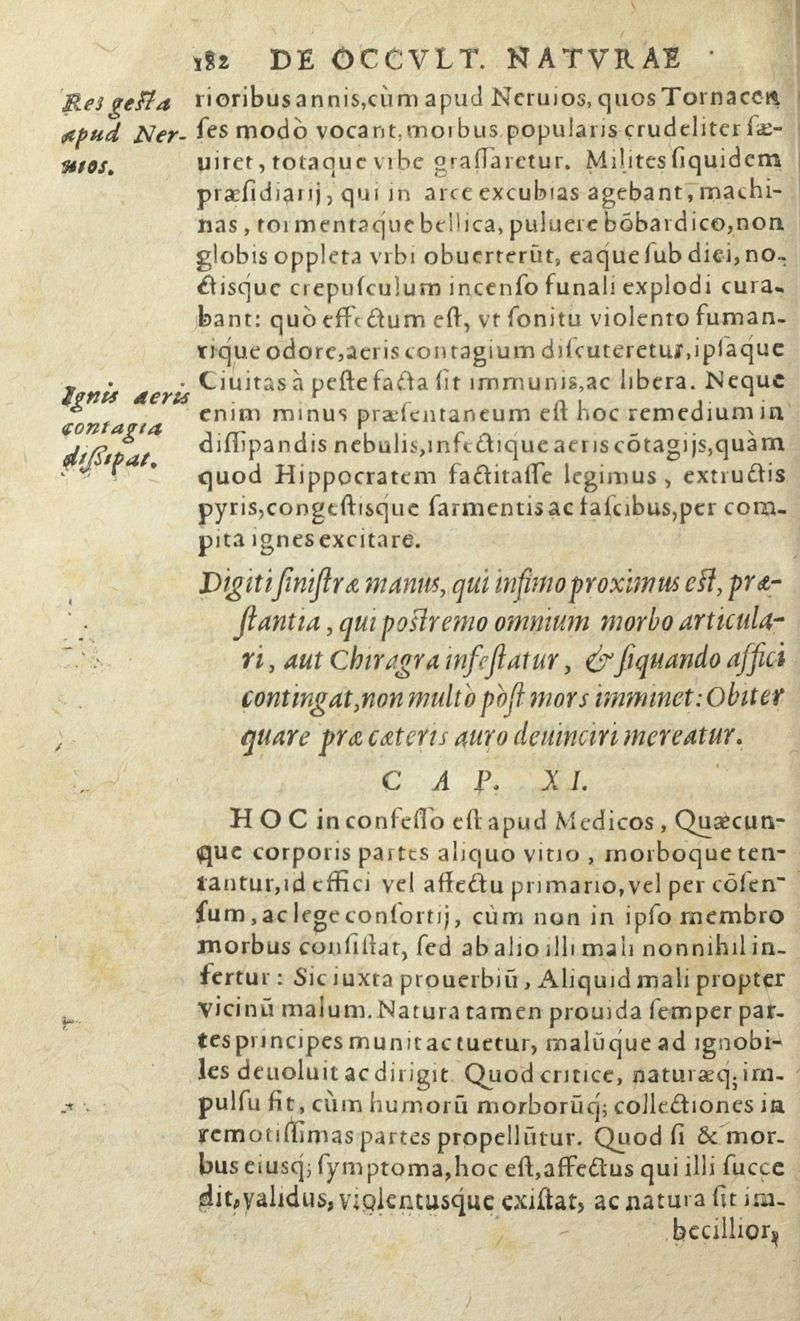 182 DE OCCVLT. NATVRAE
Res gesta
apud Ner-
uios.
rioribus annis, cùm apud Neruios, quos Tornacen
ſes modò vocant, morbus popularis crudeliter ſæ-
uiret, totaque vrbe graſſaretur. Milites ſiquidem
præſidiarij, qui in arce excubias agebant, machi-
nas, tormentaque bellica, puluere bōbardico, non
globis oppleta vrbi obuerterūt, eaque ſub diei, no-
ctisque crepuſculum incenſo funali explodi cura-
bant: quò effectum eſt, vt ſonitu violento fuman-
tique odore, aeris contagium diſcuteretur, ipſaque
Ciuitas à peſte facta ſit immunis, ac libera. Neque
Ignis aeris
contagia
diſsipat.
enim minus præſentaneum eſt hoc remedium in
diſſipandis nebulis, infectique aeris cōtagijs, quàm
quod Hippocratem factitaſſe legimus, extructis
pyris, congeſtisque ſarmentis ac faſcibus, per com-
pita ignes excitare.
Digiti ſiniſtræ manus, qui infimo proximus eſt, præ-
ſtantia, qui poſtremo omnium morbo articula-
ri, aut Chiragra infeſtatur, & ſiquando affici
contingat, non multò pòſt mors imminet: Obiter
quare præ cæteris auro deuinciri mereatur.
CAP. XI.
HOC in confeſſo eſt apud Medicos, Quæcun-
que corporis partes aliquo vitio, morboque ten-
tantur, id effici vel affectu primario, vel per cōſen-
ſum, ac lege conſortij, cùm non in ipſo membro
morbus conſiſtat, ſed ab alio illi mali nonnihil in-
fertur: Sic iuxta prouerbiū, Aliquid mali propter
vicinū malum. Natura tamen prouida ſemper par-
tes principes munit ac tuetur, malūque ad ignobi-
les deuoluit ac dirigit. Quod critice, naturæq; im-
pulſu fit, cùm humorū morborūq; collectiones in
remotiſſimas partes propellūtur. Quod ſi & mor-
bus eiusq; ſymptoma, hoc eſt, affectus qui illi ſucce
dit, validus, violentusque exiſtat, ac natura ſit im-
becillior,